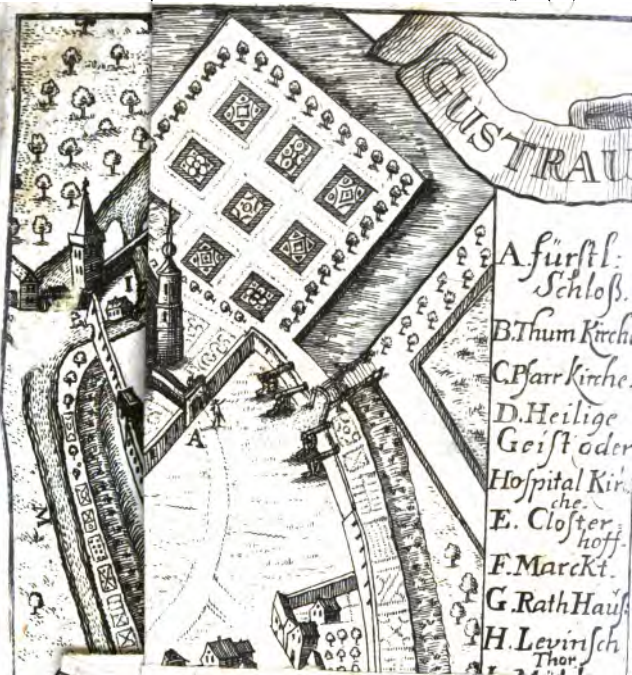 GUSTRAU
A. fürstl:
Schloß.
B. Thum Kirche
C. Pfarr kirche.
D. Heilige
Geist oder
Hospital Kir
che.
E. Closter
hoff.
F. Marckt.
G. Rath Hauß
H. Levinsch
Thor
I
A